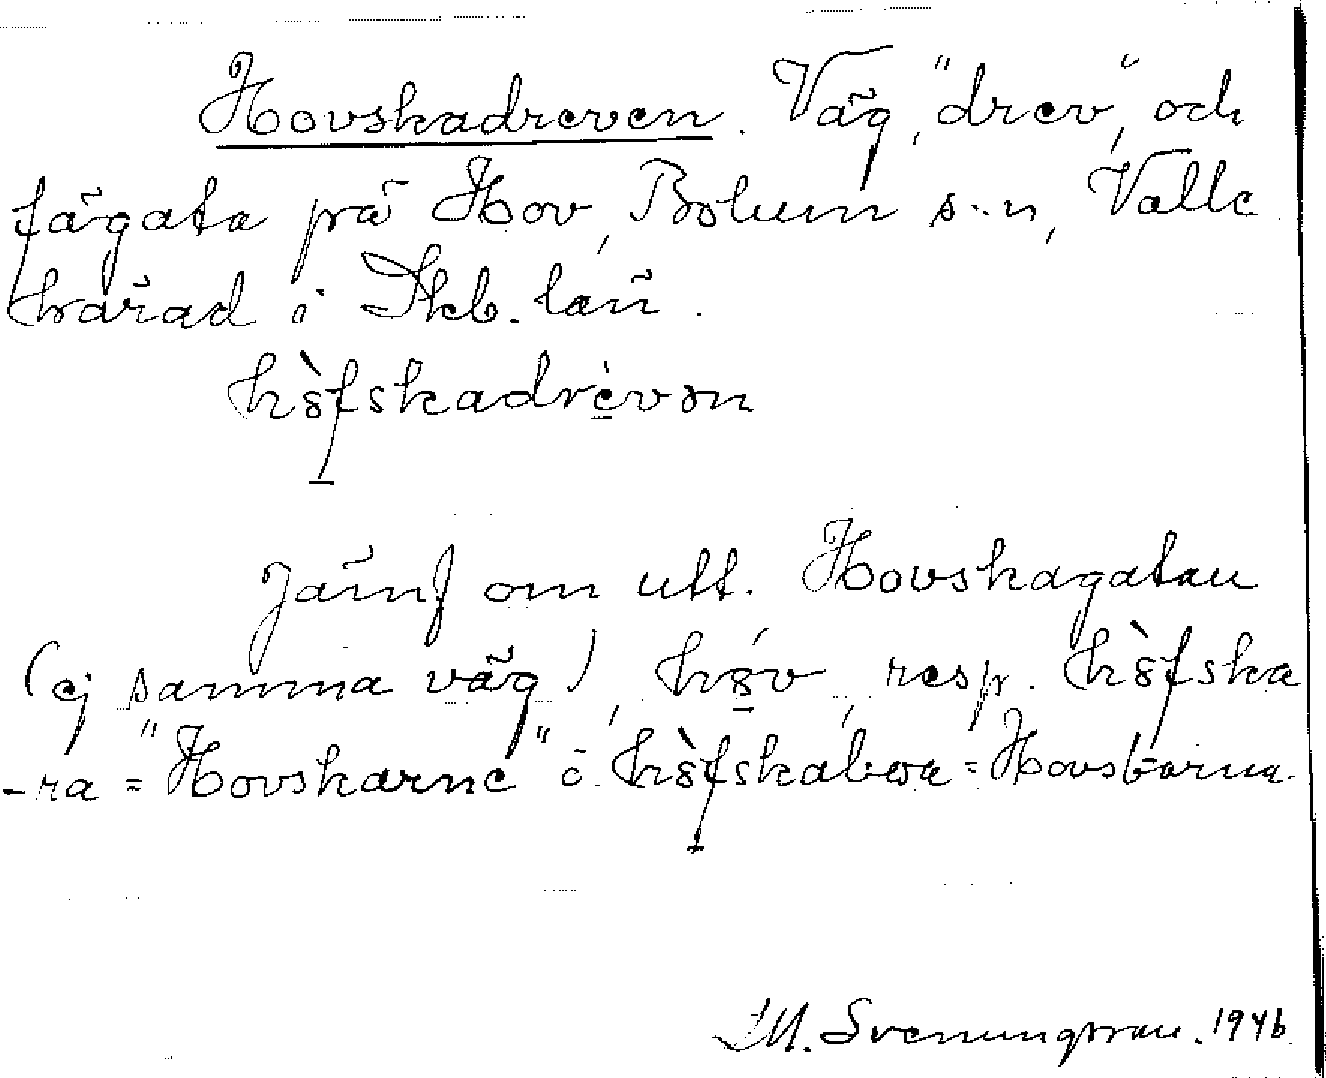 Hovskadreven. Väg, "drev", och
fägata på Hov, Bolum s:n, Valle
härad i Skb. län.
hòfskadrèvən
Jämf om utt. Hovskagatan
(ej samma väg), hóv, resp. hòfska
-ra = "Hovskarne" o. hòfskabᴏa = Hovsborna.
M. Svenungsson. 1946